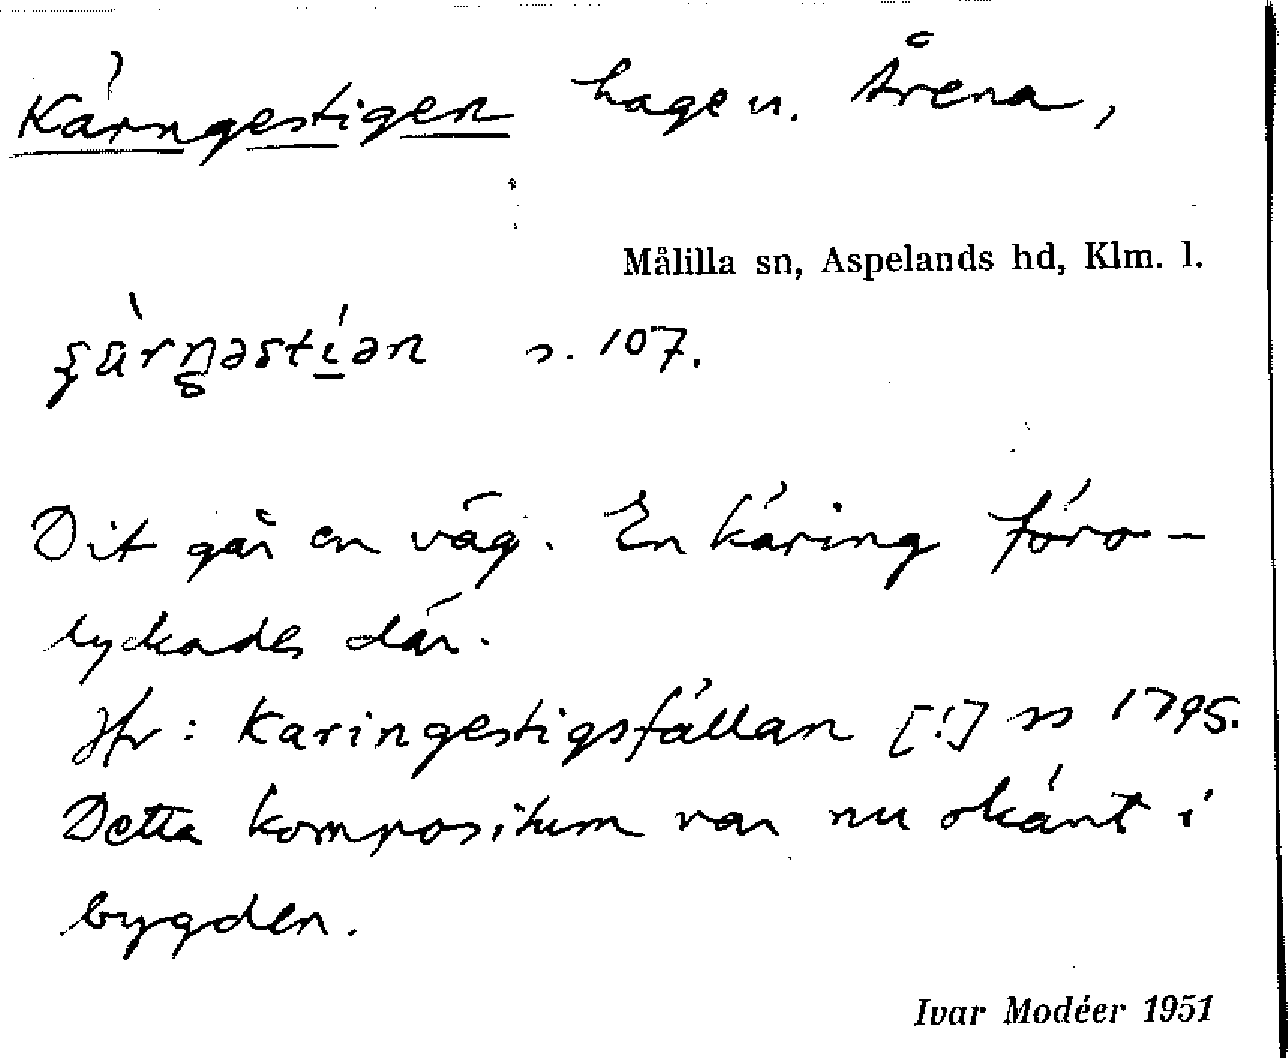 Kärngestigen hage u. Årena,
Målilla sn, Aspelands hd, Klm. l.
s. 107.
Dit går en väg. En käring föro-
lyckades där.
Jfr: Karingestigsfällan [!] ss 1795.
Detta kompositum var nu okänt i
bygden.
Ivar Modéer 1951